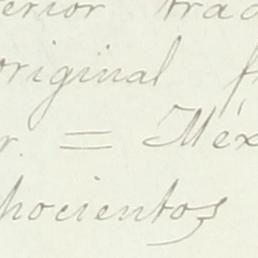 erior trad
original f
r. = Méx
hocientos